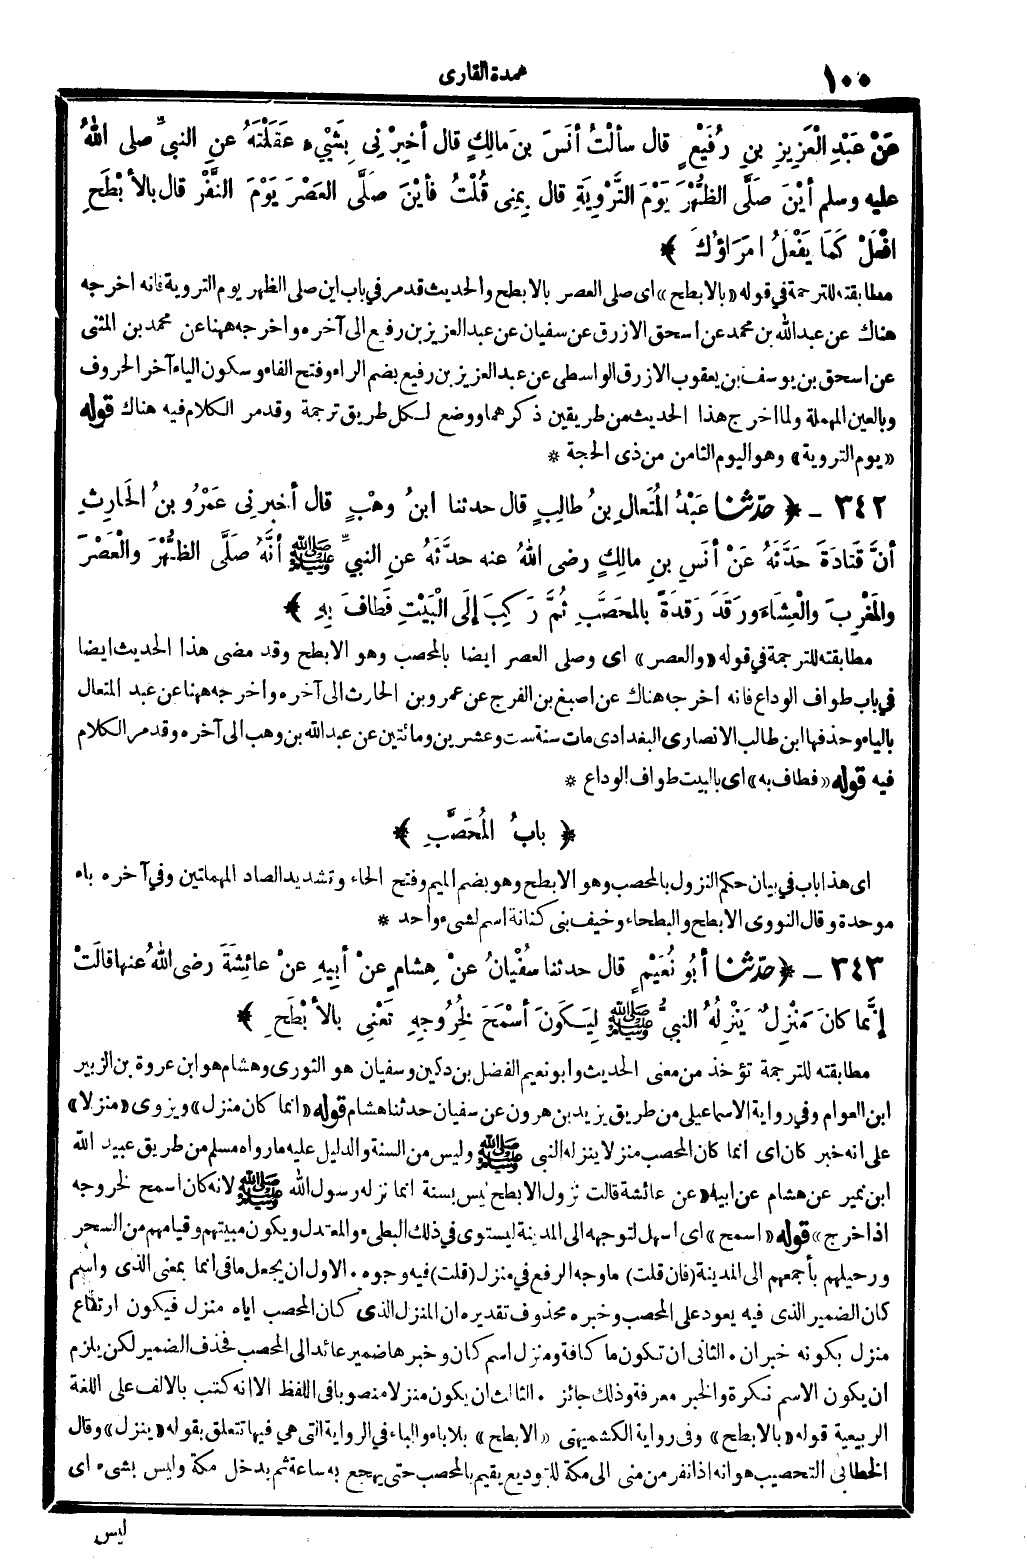 ١٠٠
عمدة القارى
عَنْ عَبْدِ الْعَزِيزِ بنِ رُفَيْعٍ قال سألْتُ أنَسَ بنَ مالِكٍ قال أخبِرْنِى بِشَيْءٍ عَقَلْتَهُ عنِ النبىِّ صلى اللهُ
عليه وسلم أيْنَ صَلَّى الظُّهْرَ يَوْمَ التَّرْوِيَةِ قال بِمِنى قُلْتُ فأيْنَ صَلَّى العَصْرَ يَوْمَ النَّفْرِ قال بالأبْطَحِ
افْعَلْ كَمَا يَفْعَلُ امَرَاؤُكَ ﴾
مطابقته للترجمة في قوله «بالابطح» اى صلى العصر بالابطح والحديث قد مر في باب اين صلى الظهر يوم التروية فانه اخرجه
هناك عن عبدالله بن محمد عن اسحق الازرق عن سفيان عن عبدالعزيز بن رفيع الى آخره واخرجه ههنا عن محمد بن المثنى
عن اسحق بن يوسف بن يعقوب الازرق الواسطى عن عبدالعزيز بن رفيع بضم الراء وفتح الفاء وسكون الياء آخر الحروف
وبالعين المهملة ولما اخرج هذا الحديث من طريقين ذكرهما ووضع لكل طريق ترجمة وقد مر الكلام فيه هناك قوله
«يوم التروية» وهو اليوم الثامن من ذى الحجة *
٣٤٢ ـ ﴿ حدّثنا عَبْدُ المُتَعَالِ بنُ طالِبٍ قال حدثنا ابنُ وهْبٍ قال أخبرنى عَمْرُو بنُ الحَارِثِ
أنَّ قَتَادَةَ حَدَّثَهُ عَنْ أنَسِ بنِ مالِكٍ رضى اللهُ عنه حدَّثَهُ عنِ النبىِّ ﷺ أنَّهُ صَلَّى الظُّهْرَ والْعَصْرَ
والمَغْرِبَ والْعِشَاءَ ورَقَدَ رَقْدَةً بالمُحَصَّبِ ثُمَّ رَكِبَ إلَى الْبَيْتِ فَطافَ بِهِ ﴾
مطابقته للترجمة في قوله «والعصر» اى وصلى العصر ايضا بالمحصب وهو الابطح وقد مضى هذا الحديث ايضا
في باب طواف الوداع فانه اخرجه هناك عن اصبغ بن الفرج عن عمرو بن الحارث الى آخره واخرجه ههنا عن عبد المتعال
بالياء وحذفها ابن طالب الانصارى البغدادى مات سنة ست وعشرين ومائتين عن عبدالله بن وهب الى آخره وقد مر الكلام
فيه قوله «فطاف به» اى بالبيت طواف الوداع *
﴿ بابُ المُحَصَّبِ ﴾
اى هذا باب في بيان حكم النزول بالمحصب وهو الابطح وهو بضم الميم وفتح الحاء وتشديد الصاد المهملتين وفي آخره باء
موحدة وقال النووى الابطح والبطحاء وخيف بنى كنانة اسم لشىء واحد *
٣٤٣ ـ ﴿ حدّثنا أبُو نُعَيْمٍ قال حدثنا سُفْيانُ عنْ هِشامٍ عنْ أبِيهِ عنْ عائِشَةَ رضى اللهُ عنها قالَتْ
إنَّما كانَ مَنْزِلٌ يَنْزِلُهُ النبىُّ ﷺ لِيَكُونَ أسْمَحَ لِخُرُوجِهِ تَعْنِى بالأبْطَحِ ﴾
مطابقته للترجمة تؤخذ من معنى الحديث وابو نعيم الفضل بن دكين وسفيان هو الثورى وهشام هو ابن عروة بن الزبير
ابن العوام وفي رواية الاسماعيلى من طريق يزيد بن هرون عن سفيان حدثنا هشام قوله «انما كان منزل» ويروى «منزلا»
على انه خبر كان اى انما كان المحصب منزلا ينزله النبى ﷺ وليس من السنة والدليل عليه ما رواه مسلم من طريق عبيد الله
ابن نمير عن هشام عن ابيه «عن عائشة قالت نزول الابطح ليس بسنة انما نزله رسول الله ﷺ لانه كان اسمح لخروجه
اذا خرج» قوله «اسمح» اى اسهل لتوجهه الى المدينة ليستوى في ذلك البطىء والمعتدل ويكون مبيتهم وقيامهم من السحر
ورحيلهم بأجمعهم الى المدينة (فان قلت) ما وجه الرفع في منزل (قلت) فيه وجوه . الاول ان يجعل ما في انما بمعنى الذى واسم
كان الضمير الذى فيه يعود على المحصب وخبره محذوف تقديره ان المنزل الذى كان المحصب اياه منزل فيكون ارتفاع
منزل بكونه خبر ان . الثانى ان تكون ما كافة ومنزل اسم كان وخبرها ضمير عائد الى المحصب فحذف الضمير لكن يلزم
ان يكون الاسم نكرة والخبر معرفة وذلك جائز . الثالث ان يكون منزلا منصوبا في اللفظ الا انه كتب بالالف على اللغة
الربيعية قوله «بالابطح» وفى رواية الكشميهنى «الابطح» بلا باء والباء في الرواية التى هي فيها تتعلق بقوله «ينزل» وقال
الخطابى التحصيب هو انه اذا نفر من منى الى مكة للتوديع يقيم بالمحصب حتى يهجع به ساعة ثم يدخل مكة وليس بشىء اى
ليس